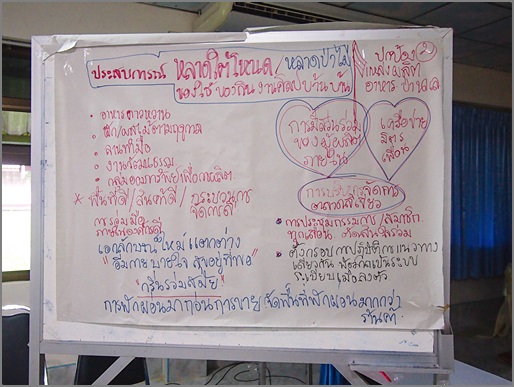 ประสบการณ์ หลาดใต้โหนด / หลาดป่าไผ่
ของใช้ ของกิน งานศิลป์ บ้านบ้าน
ปกป้อง
แหล่งผลิต
อาหาร ป่า เล
2
การมีส่วนร่วม
ของผู้ผลิต
ภายใน
เครือข่าย
มิตร
เพื่อน
• อาหารคาวหวาน
• ผัก/ผลไม้ตามฤดูกาล
• งานทำมือ
• งานวัฒนธรรม
• กลุ่มองค์กรที่ทำเพื่อ
* พื้นที่ดี / สินค้าดี / กระบวนการ
จัดการดี
การจัดการ
ตลาดสีเขียว
• การประชุมกรรมการ / สมาชิก
ทุกเดือน ต้องมีส่วนร่วม
การร่วมมือ
เอกลักษณ์ ใหม่ แตกต่าง
"อิ่มกาย สบายใจ สุขอยู่ที่พอ"
"กรีนร่วมสมัย"
• ตั้งกรอบการปฏิบัติการแนวทาง
เดียวกัน
ระเบียบ
การพักผ่อนมาก่อนการขาย จัดพื้นที่พักผ่อนมากกว่า
ร้านค้า